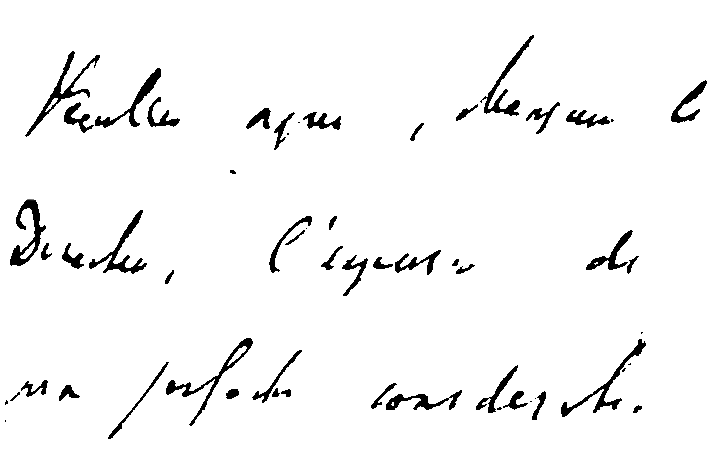 Veuillez agréer, Monsieur le
Directeur, l'expression de
ma parfaite considération.